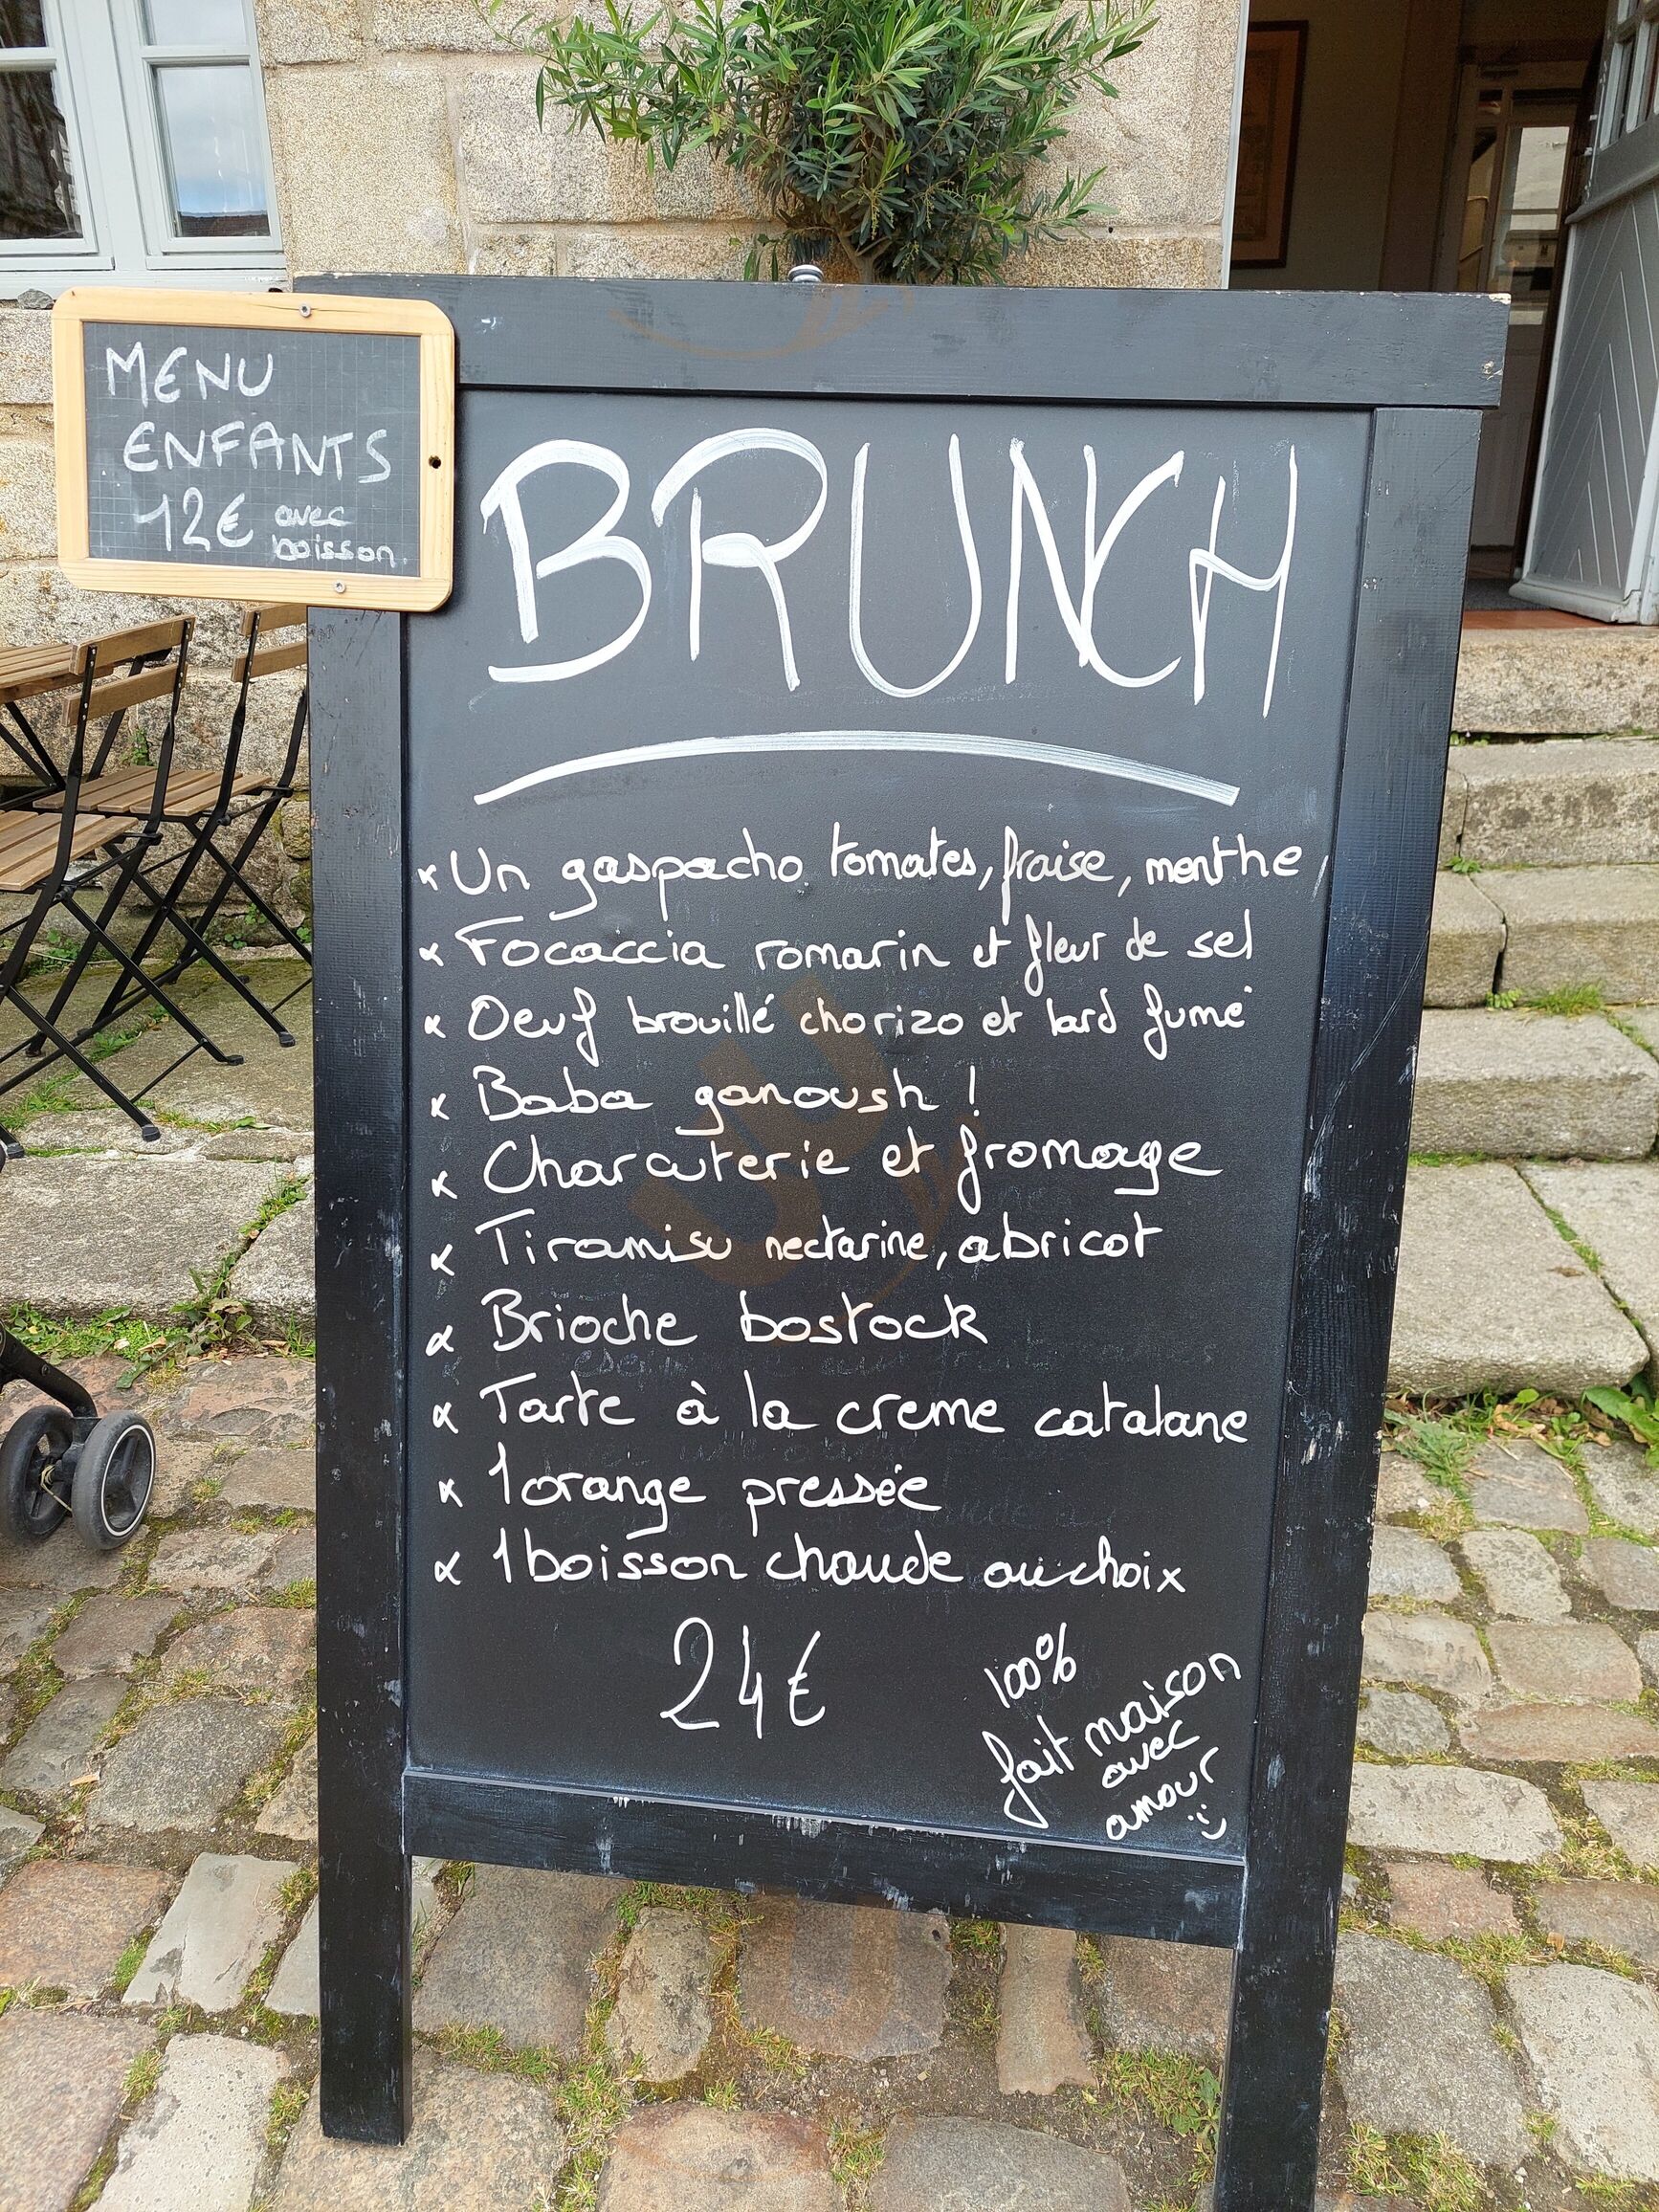 MENU
ENFANTS
12€ avec
boisson
BRUNCH
Un gaspacho tomates, fraise, menthe
Focaccia romarin et fleur de sel
Oeuf brouillé chorizo et lard fumé
Baba ganoush !
Charcuterie et fromage
Tiramisu nectarine, abricot
Brioche bostock
Tarte à la creme catalane
1 orange pressée
1 boisson chaude au choix
24€
100%
fait maison
avec
amour :)